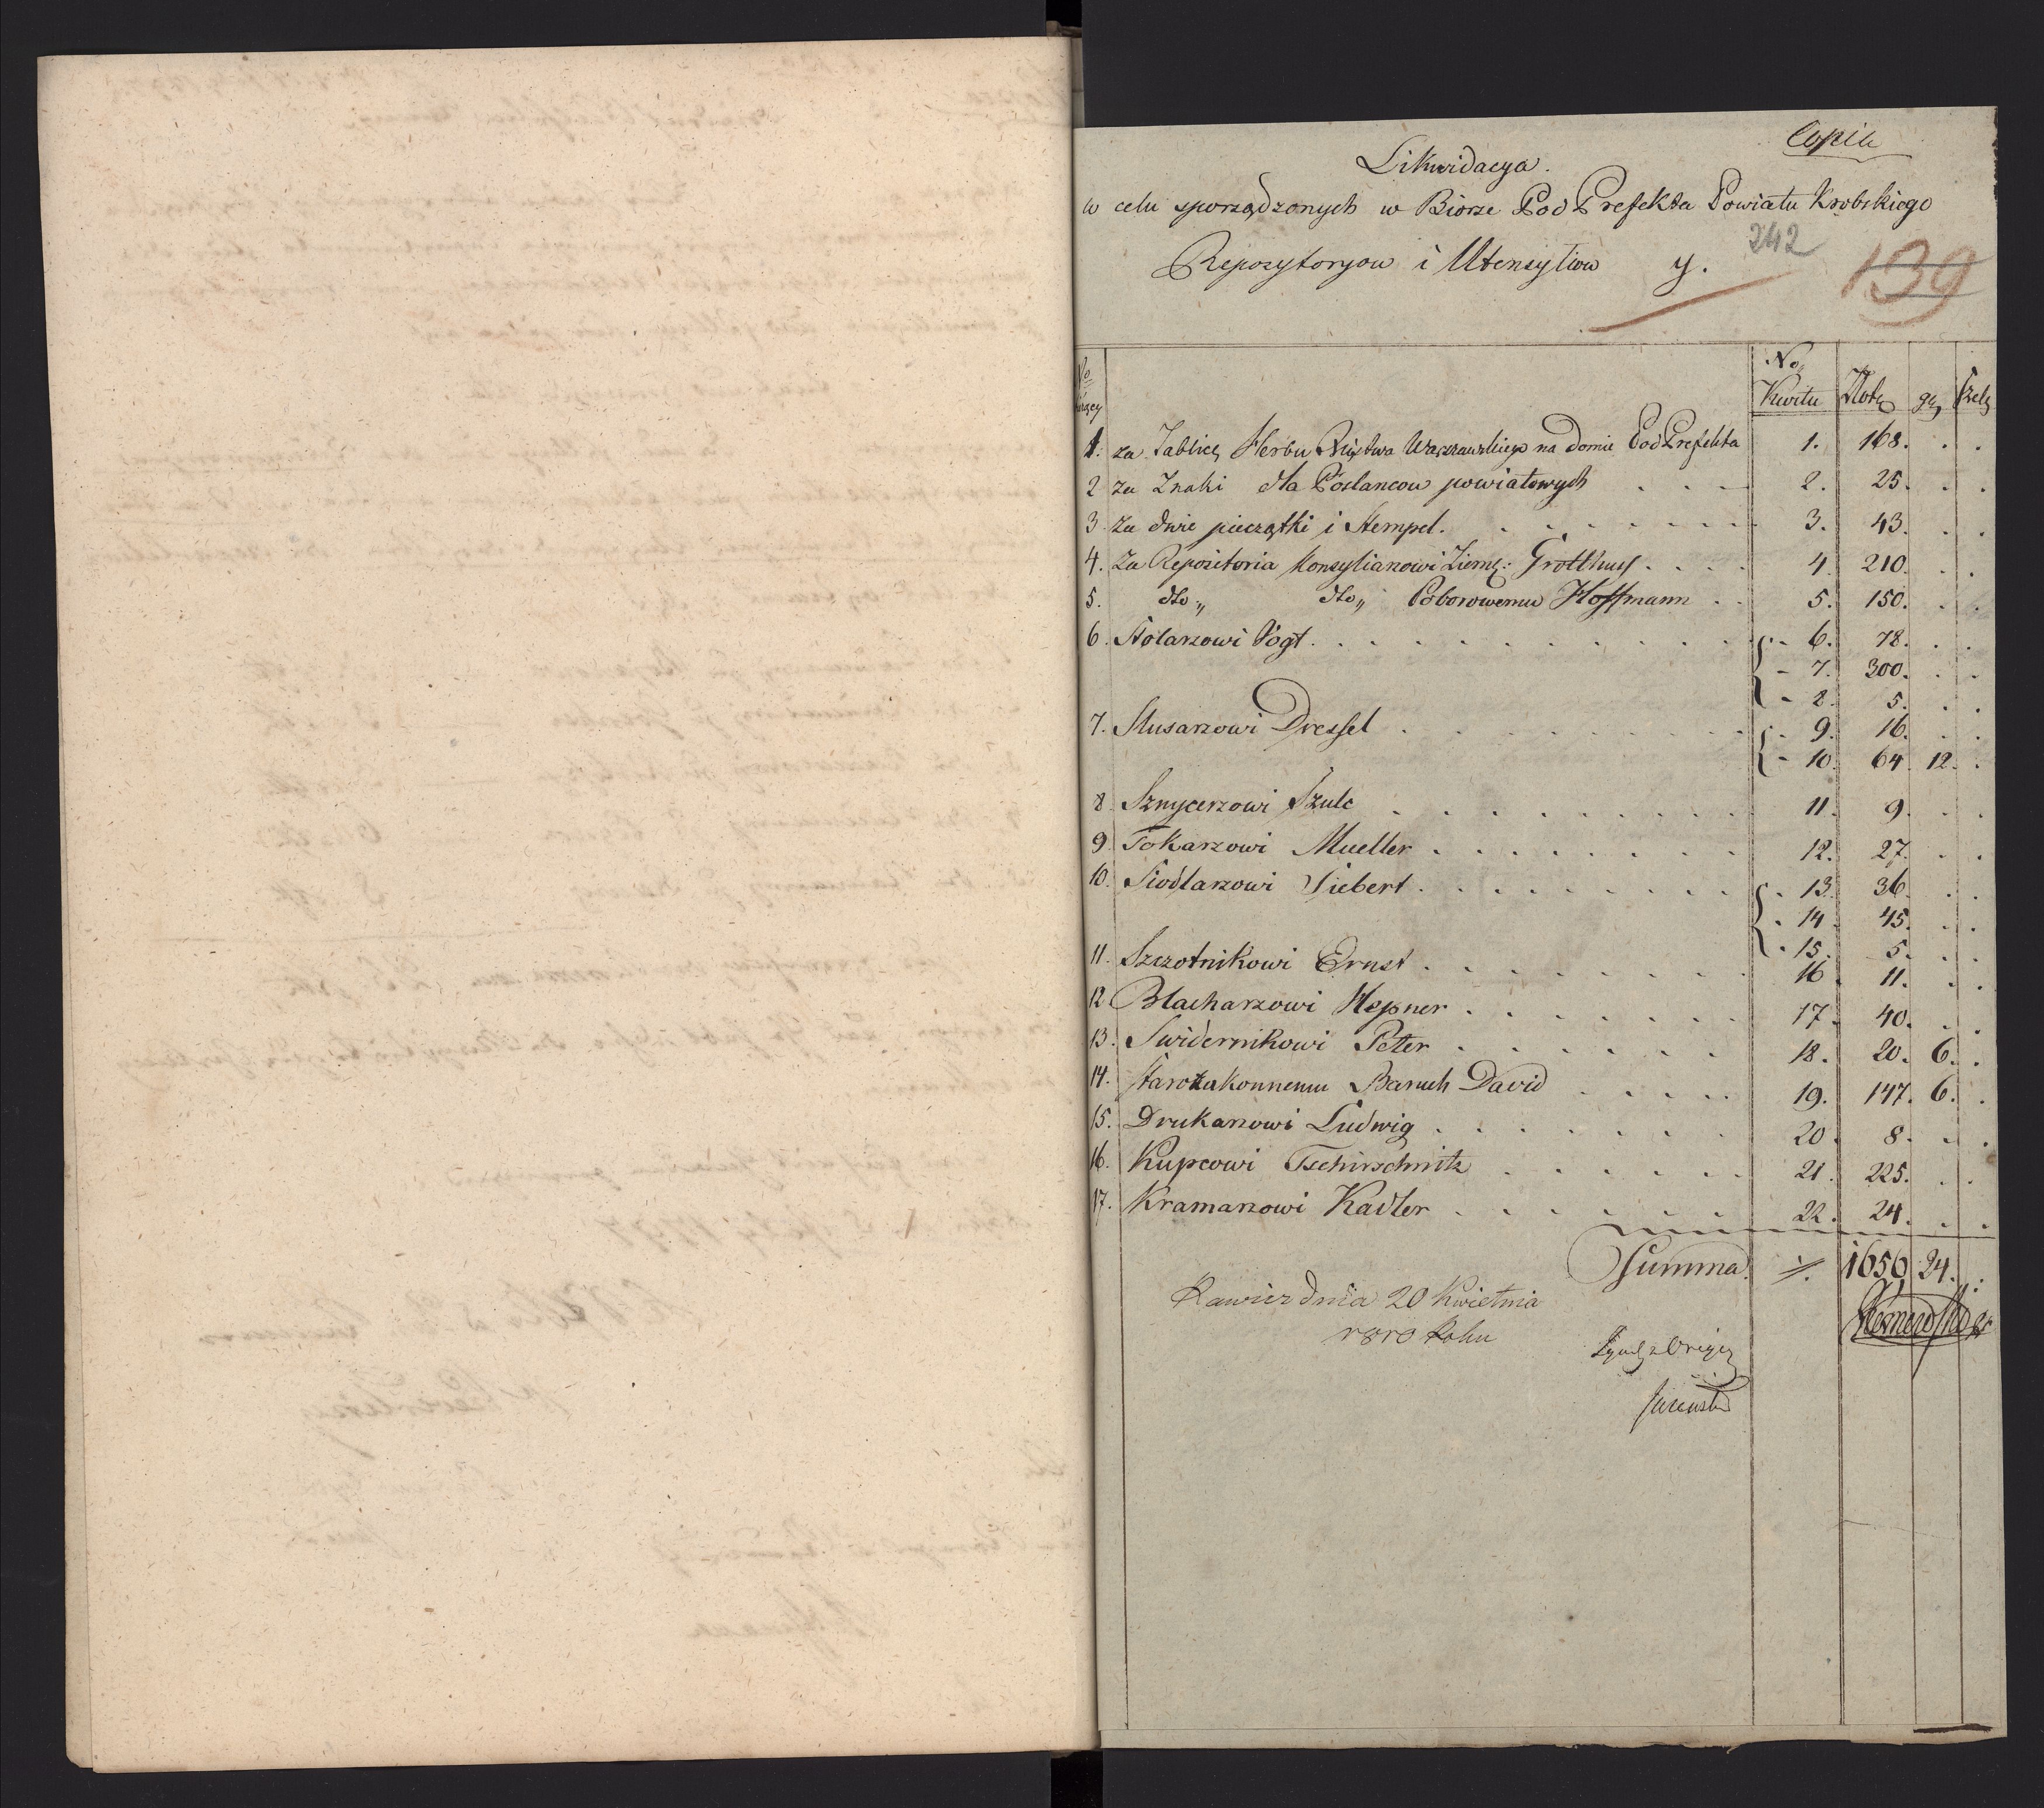 Copia
Likwidacya.
w celu sporządzonych w Biorze PodPrefekta Powiatu Krobskiego
Repozytoryow i Utensyliow y.
242
139
No No
Kwitu Złote gr szelą
1. za Tablicę Herbu Xięstwa Warszawskiego na domie PodPrefekta 1. 168. . .
2 za Znaki dla Posłancow powiatowych . . . 2. 25. . .
3. za dwie pieczątki i Stempel. . . . . . . . 3. 43. . .
4. za Repozitoria Konsyliarzowi Ziems: Grotthus . . . . 4 210. . .
5. dto „ dto „ Poborowemu Hoffmann . . 5. 150. . .
6. Stolarzowi Vogt . . . . . . . . . . . . - 6. 78. . .
- 7. 300. . .
- 8. 5. . .
7. Slusarzowi Dressel . . . . . . . . . - 9. 16. . .
- 10. 64. 12. .
8. Sznycerzowi Szulc . . . . . . . . . 11. 9. . .
9. Tokarzowi Mueller . . . . . . . . 12. 27. . .
10. Siodlarzowi Siebert . . . . . . . . . 13. 36. . .
. 14. 45. . .
. 15. 5. . .
11. Szczotnikowi Ernst . . . . . . . . 16. 11. . .
12 Blacharzowi Hepner . . . . . . . 17. 40. . .
13. Swidernikowi Peter . . . . . . 18. 20. 6. .
14. Starozakonnemu Baruch David . . . . . 19. 147. 6. .
15. Drukarzowi Ludwig . . . . . . . 20. 8. . .
16. Kupcowi Tschirschnitz . . . . . . 21. 225. . .
17. Kramarzowi Kadler . . . . . . . 22. 24. . .
Summa. 1656 24. .
Rawicz dnia 20 Kwietnia
1810 Roku